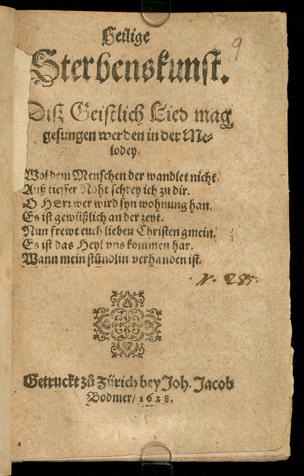 Heilige
Sterbenskunst.
9
Diß Geistlich Lied mag
gesungen werden in der Me-
lodey.
Wol dem Menschen der wandlet nicht.
Auß tieffer Noht schrey ich zu dir.
O HErr wer wird syn wohnung han.
Es ist gewüßlich an der zeyt.
Nun frewt euch lieben Christen gmein.
Es ist das Heyl vns kommen har.
Wann mein stündlin verhanden ist.
N. 285.
Getruckt zů Zürich bey Joh. Jacob
Bodmer/ 1628.